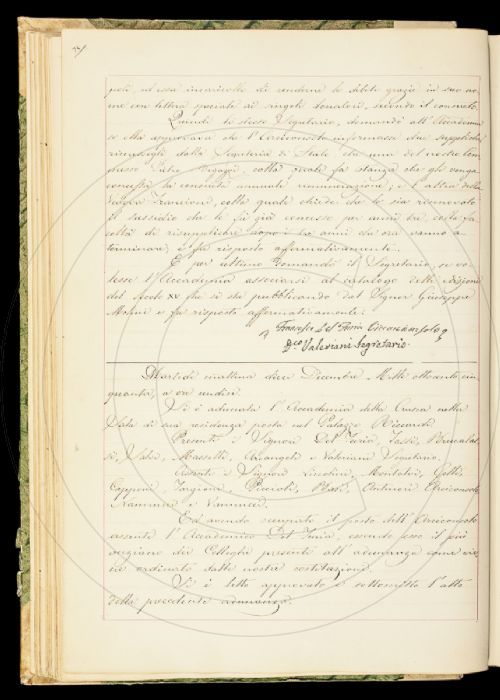 poli, ed essa incaricollo di renderne le debite grazie in suo no-
me con lettera speciale ai singoli donatori, secondo il consueto.
Quindi lo stesso Segretario, domandò all'Accademia
se ella approvava che l'Arciconsolo informasse due suppliche
rimessegli dalla Segreteria di Stato, che una del nostro Com-
messo Pietro, colla quale fa istanza che gli venga
concessa la consueta annuale remunerazione; e l'altra della
Vedova, colla quale chiede che le sia rinnovato
il sussidio che le fu già concesso per anni tre, colla fa-
coltà di risupplicare dopo i tre anni che ora vanno a
terminare, e fu risposto affermativamente.
E per ultimo domandò il Segretario, se vo-
lesse l'Accademia associarsi al catalogo delle edizioni
del secolo XV che si sta pubblicando dal Signor Giuseppe
e fu risposto affermativamente.
Francesco Del Furia Arciconsolo
Dco Valeriani Segretario.
Martedì mattina dieci Dicembre Mille ottocento cin-
quanta, a ore undici.
Si è adunata l'Accademia della Crusca nella
Sala di sua residenza posta nel Palazzo Riccardi
Presenti i Signori Del Furia, Tassi, Bruscoli
Valeri, Masselli, Arcangeli e Valeriani Segretario.
Assenti i Signori Niccolini, Montalvi, Gelli,
Capponi, Targioni, Puccioti, Basi, Antinori Arciconsolo
Nannucci e Vannucci.
Ed avendo occupato il posto dell'Arciconsolo
assente l'Accademico Del Furia, essendo esso il più
anziano dei Colleghi presenti all'adunanza come vie-
ne ordinato dalle nostre costituzioni.
Si è letto approvato e sottoscritto l'atto
della precedente adunanza.